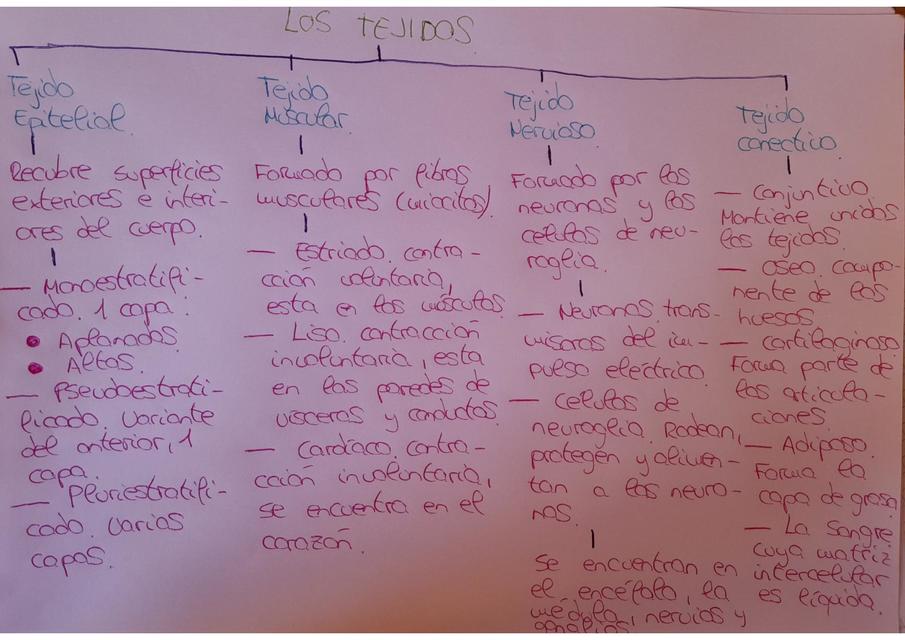 LOS TEJIDOS
Tejido
Epitelial.
Recubre superficies
exteriores e interi-
ores del cuerpo.
— Monoestratifi-
cado. 1 capa:
• Aplanados
• Altos.
— Pseudoestrati-
ficado. Variante
del anterior, 1
capa.
— Pluriestratifi-
cado. Varias
capas.
Tejido
Muscular.
Formado por fibras
musculares (miocitos).
— Estriado. contra-
cción voluntaria,
esta en los músculos
— Liso. contracción
involuntaria, esta
en las paredes de
vísceras y conductos.
— Cardíaco. contra-
cción involuntaria,
se encuentra en el
corazón.
Tejido
Nervioso.
Formado por las
neuronas y las
celulas de neu-
roglia.
— Neuronas. trans-
misoras del im-
pulso eléctrico.
— celulas de
neuroglia. Rodean,
protegen y alimen-
tan a las neuro-
nas.
se encuentran en
el encéfalo, la
médula, nervios y
ganglios.
Tejido
conectico.
— Conjuntico
Mantiene unidos
los tejidos.
— oseo. compo-
nente de los
huesos
— cartilaginoso
Forma parte de
las articula-
ciones.
— Adiposo.
Forma la
capa de grasa
— La sangre
cuya matriz
intercelular
es líquida.